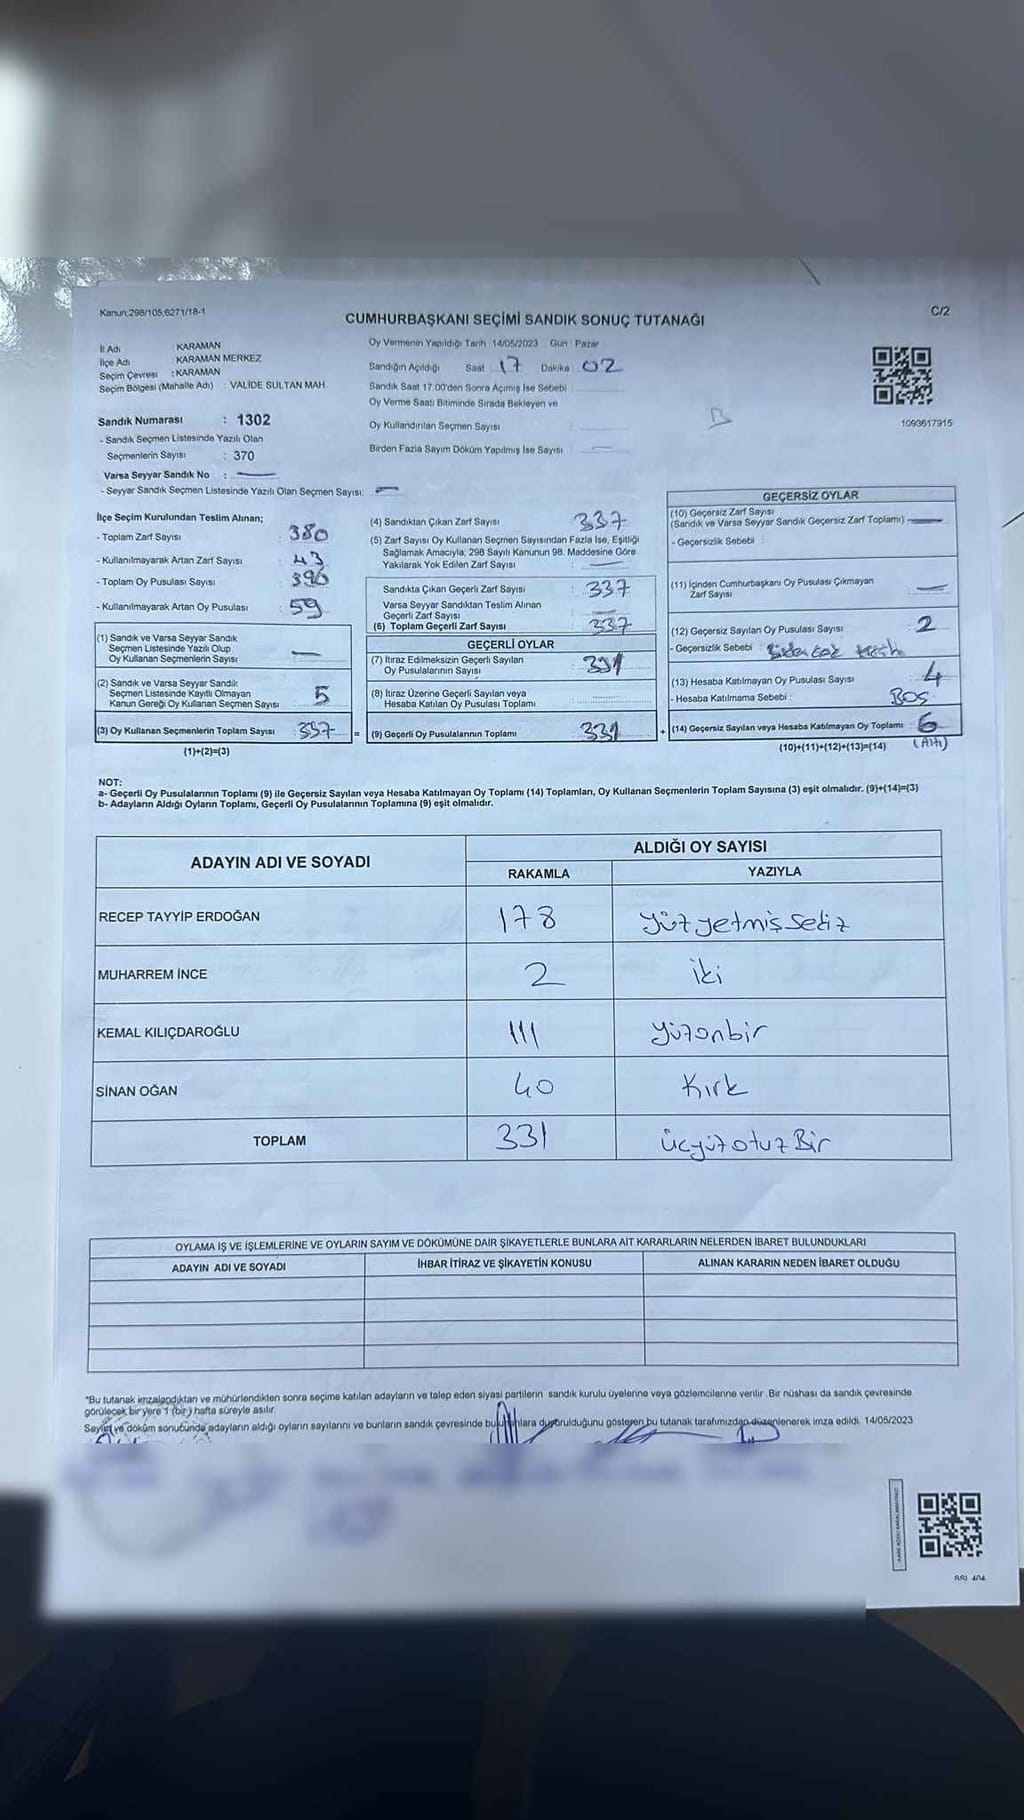 Kanun;298/105,6271/18-1
C/2
CUMHURBAŞKANI SEÇİMİ SANDIK SONUÇ TUTANAĞI
İl Adı : KARAMAN
İlçe Adı : KARAMAN MERKEZ
Seçim Çevresi : KARAMAN
Seçim Bölgesi (Mahalle Adı) : VALİDE SULTAN MAH.
Sandık Numarası : 1302
- Sandık Seçmen Listesinde Yazılı Olan
Seçmenlerin Sayısı : 370
Varsa Seyyar Sandık No :
- Seyyar Sandık Seçmen Listesinde Yazılı Olan Seçmen Sayısı:
Oy Vermenin Yapıldığı Tarih : 14/05/2023 Gün : Pazar
Sandığın Açıldığı Saat : 17 Dakika : 02
Sandık Saat 17:00'den Sonra Açılmış İse Sebebi :
Oy Verme Saati Bitiminde Sırada Bekleyen ve
Oy Kullandırılan Seçmen Sayısı :
Birden Fazla Sayım Döküm Yapılmış İse Sayısı :
B
1093617915
İlçe Seçim Kurulundan Teslim Alınan;
- Toplam Zarf Sayısı : 380
- Kullanılmayarak Artan Zarf Sayısı : 43
- Toplam Oy Pusulası Sayısı : 390
- Kullanılmayarak Artan Oy Pusulası : 59
(1) Sandık ve Varsa Seyyar Sandık
Seçmen Listesinde Yazılı Olup
Oy Kullanan Seçmenlerin Sayısı :
(2) Sandık ve Varsa Seyyar Sandık
Seçmen Listesinde Kayıtlı Olmayan
Kanun Gereği Oy Kullanan Seçmen Sayısı : 5
(3) Oy Kullanan Seçmenlerin Toplam Sayısı : 337 =
(1)+(2)=(3)
(4) Sandıktan Çıkan Zarf Sayısı : 337
(5) Zarf Sayısı Oy Kullanan Seçmen Sayısından Fazla İse, Eşitliği
Sağlamak Amacıyla; 298 Sayılı Kanunun 98. Maddesine Göre
Yakılarak Yok Edilen Zarf Sayısı :
Sandıkta Çıkan Geçerli Zarf Sayısı : 337
Varsa Seyyar Sandıktan Teslim Alınan
Geçerli Zarf Sayısı :
(6) Toplam Geçerli Zarf Sayısı : 337
GEÇERLİ OYLAR
(7) İtiraz Edilmeksizin Geçerli Sayılan
Oy Pusulalarının Sayısı : 331
(8) İtiraz Üzerine Geçerli Sayılan veya
Hesaba Katılan Oy Pusulası Toplamı :
(9) Geçerli Oy Pusulalarının Toplamı : 331 +
GEÇERSİZ OYLAR
(10) Geçersiz Zarf Sayısı
(Sandık ve Varsa Seyyar Sandık Geçersiz Zarf Toplamı) :
- Geçersizlik Sebebi :
(11) İçinden Cumhurbaşkanı Oy Pusulası Çıkmayan
Zarf Sayısı :
(12) Geçersiz Sayılan Oy Pusulası Sayısı : 2
- Geçersizlik Sebebi :
(13) Hesaba Katılmayan Oy Pusulası Sayısı : 4
- Hesaba Katılmama Sebebi : BOŞ
(14) Geçersiz Sayılan veya Hesaba Katılmayan Oy Toplamı : 6
(10)+(11)+(12)+(13)=(14) (Altı)
NOT:
a- Geçerli Oy Pusulalarının Toplamı (9) ile Geçersiz Sayılan veya Hesaba Katılmayan Oy Toplamı (14) Toplamları, Oy Kullanan Seçmenlerin Toplam Sayısına (3) eşit olmalıdır. (9)+(14)=(3)
b- Adayların Aldığı Oyların Toplamı, Geçerli Oy Pusulalarının Toplamına (9) eşit olmalıdır.
ADAYIN ADI VE SOYADI
ALDIĞI OY SAYISI
RAKAMLA YAZIYLA
RECEP TAYYİP ERDOĞAN 178 Yüzyetmişsekiz
MUHARREM İNCE 2 iki
KEMAL KILIÇDAROĞLU 111 Yüzonbir
SİNAN OĞAN 40 Kırk
TOPLAM 331 üçyüzotuz Bir
OYLAMA İŞ VE İŞLEMLERİNE VE OYLARIN SAYIM VE DÖKÜMÜNE DAİR ŞİKAYETLERLE BUNLARA AİT KARARLARIN NELERDEN İBARET BULUNDUKLARI
ADAYIN ADI VE SOYADI İHBAR İTİRAZ VE ŞİKAYETİN KONUSU ALINAN KARARIN NEDEN İBARET OLDUĞU
*Bu tutanak imzalandıktan ve mühürlendikten sonra seçime katılan adayların ve talep eden siyasi partilerin sandık kurulu üyelerine veya gözlemcilerine verilir. Bir nüshası da sandık çevresinde
görülecek bir yere 1 (bir) hafta süreyle asılır.
Sayım ve döküm sonucunda adayların aldığı oyların sayılarını ve bunların sandık çevresinde bulunanlara duyurulduğunu gösteren bu tutanak tarafımızdan düzenlenerek imza edildi. 14/05/2023